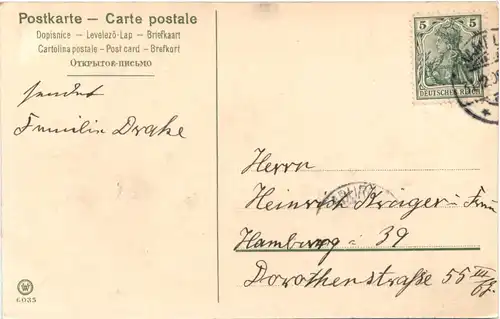 Postkarte — Carte postale
Dopisnice — Levelező-Lap — Briefkaart
Cartolina postale - Post card - Brefkort
Открытое-письмо
sendet
Familie Drake
5 5
DEUTSCHES REICH
Herrn
Heinrich Krüger
Hamburg 39
Dorothenstraße 55 III
6035